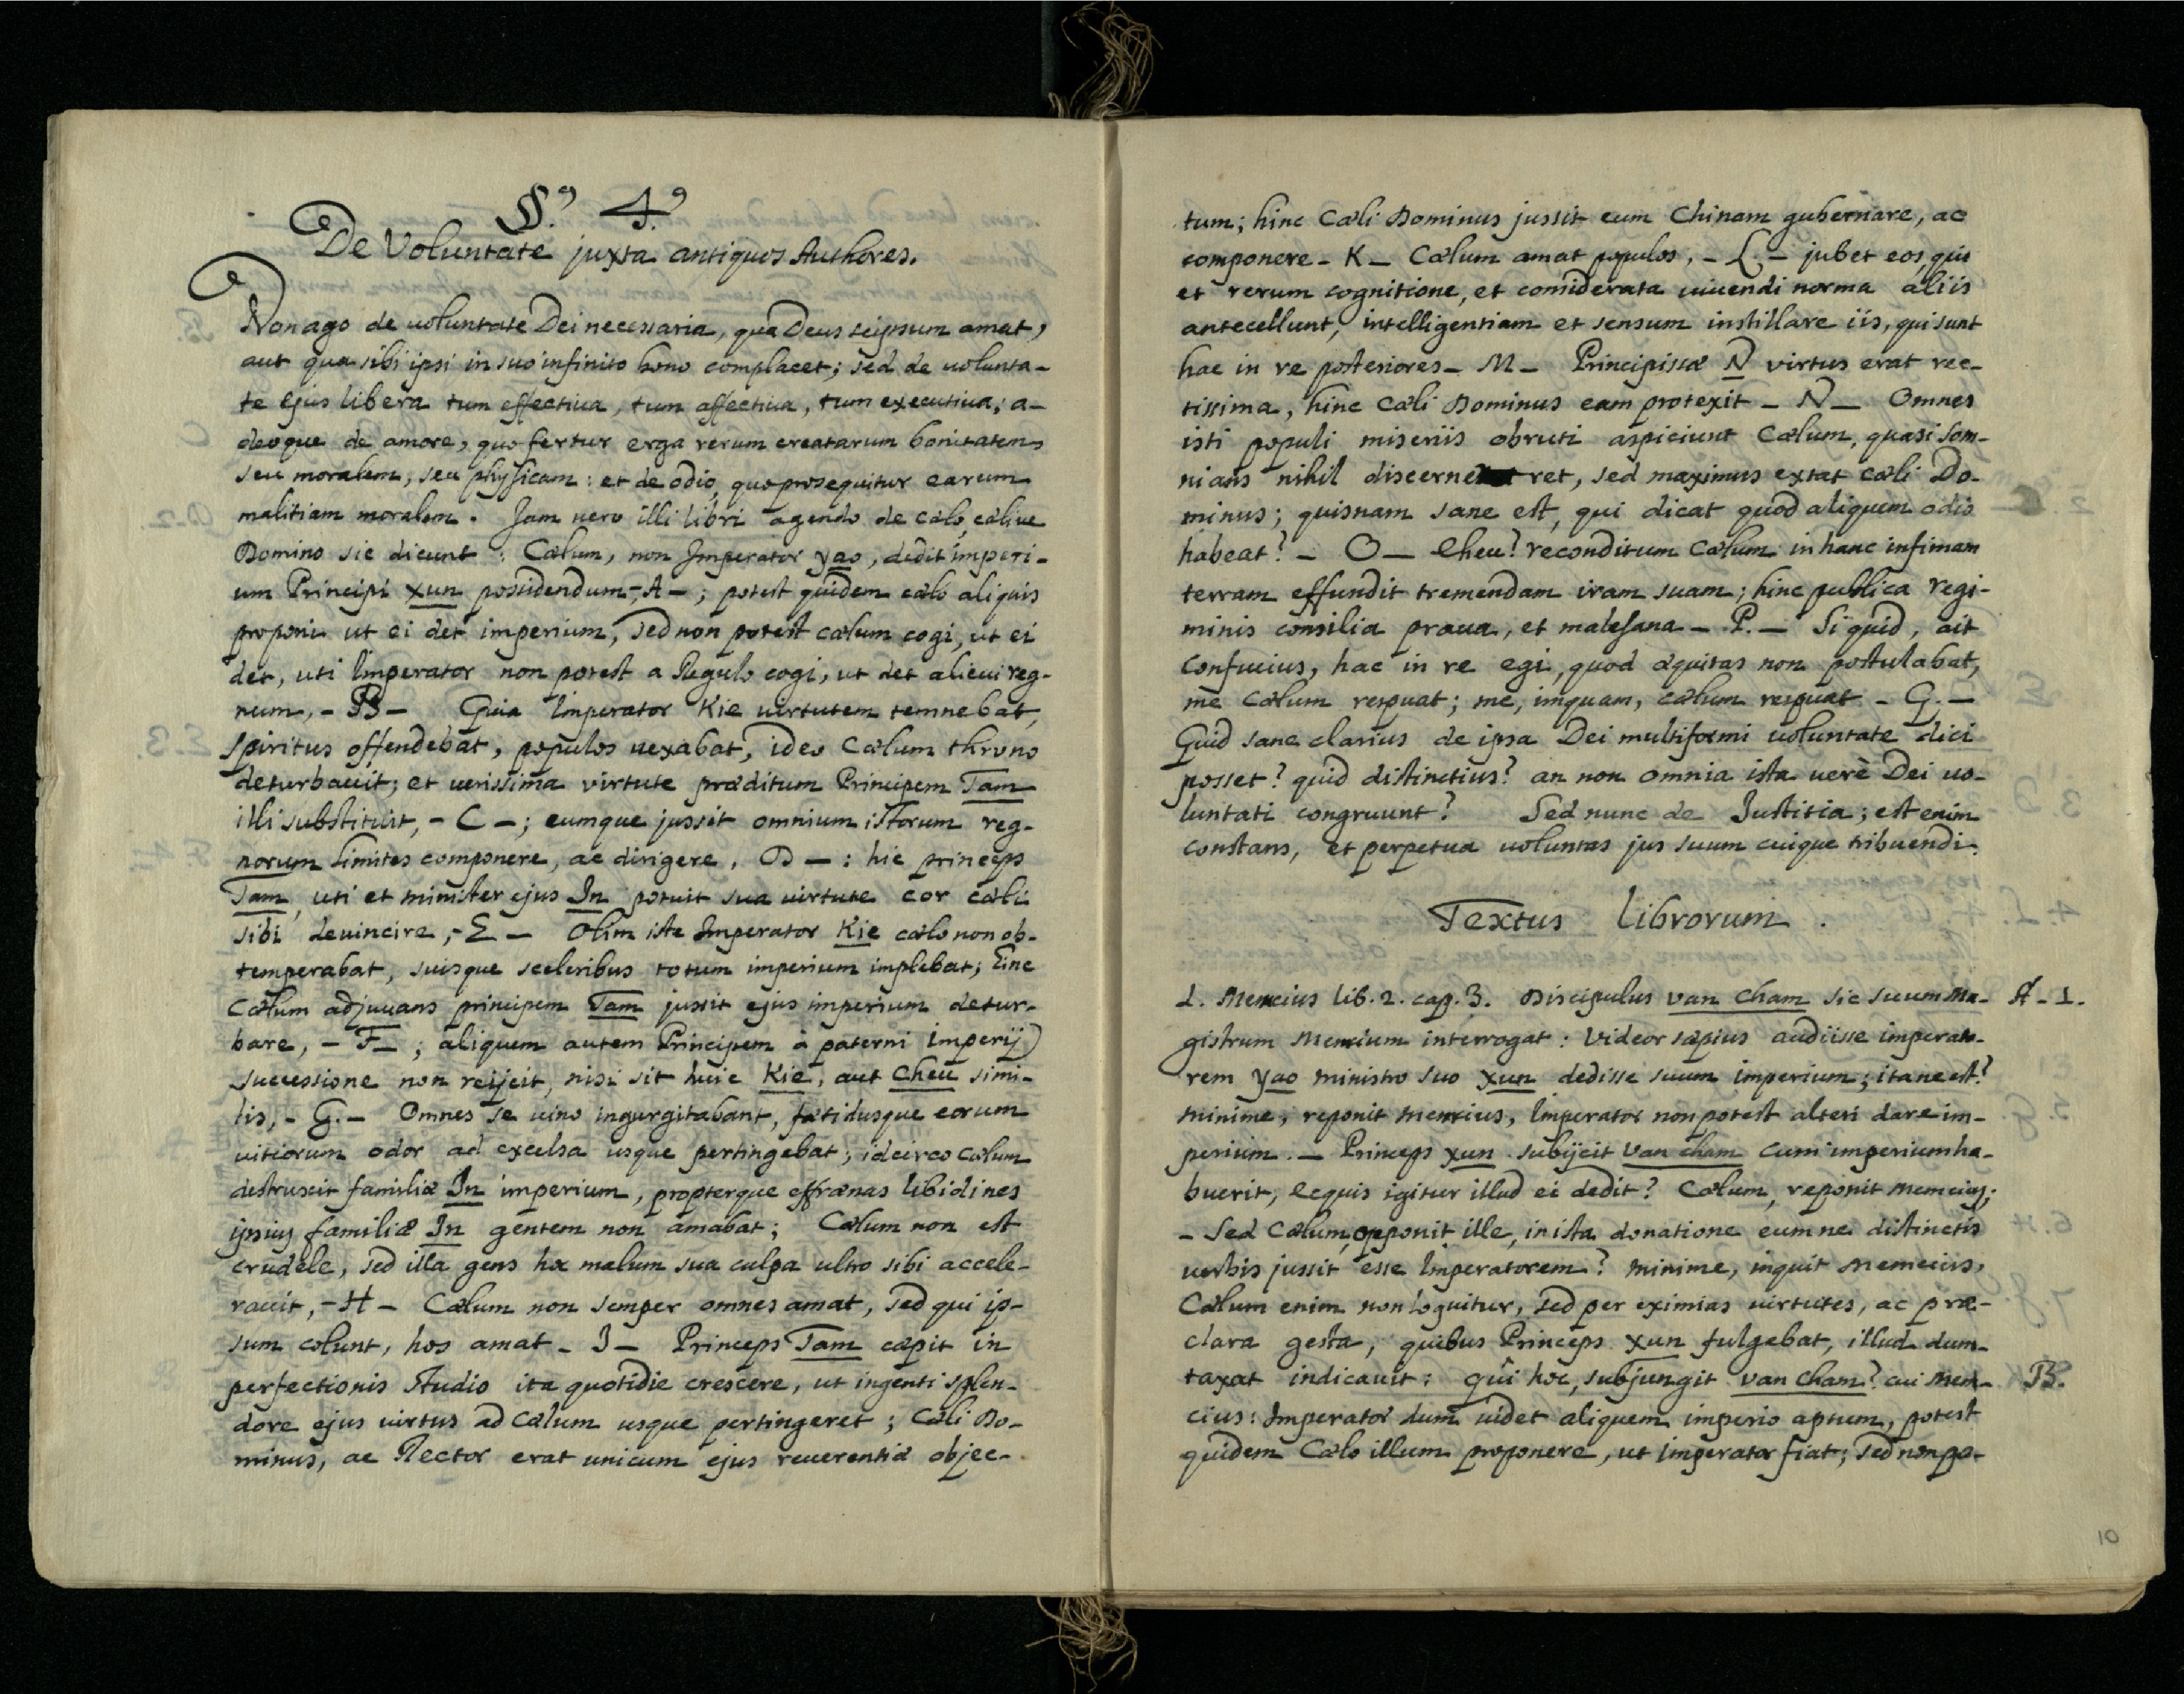 §.º 4.º
De Voluntate juxta antiquos Authores.
Non ago de uoluntate Dei necessaria, qua Deus seipsum amat,
aut qua sibi ipsi in suo infinito bono complacet; sed de uolunta-
te ejus libera tum effectiua, tum affectiua, tum executiua; a-
deoque de amore, quo fertur erga rerum creatarum bonitatem
seu moralem, seu physicam: et de odio, quo prosequitur earum
malitiam moralem. Jam uero illi libri agendo de cælo, cæliue
Domino sic dicunt: Cælum, non Imperator yao, dedit imperi-
um Principi xun possidendum,-A-; potest quidem cælo aliquis
proponi ut ei det imperium, sed non potest cælum cogi, ut ei
det, uti Imperator non potest a Regulo cogi, ut det alicui reg-
num,-B- Quia Imperator Kie uirtutem temnebat,
spiritus offendebat, populos uexabat, ideo Cælum throno
deturbauit; et uerissima virtute præditum Principem Tam
illi substituit,-C-; eumque jussit omnium istorum reg-
norum limites componere, ac dirigere, D-: hic princeps
Tam, uti et minister ejus In potuit sua uirtute cor cæli
sibi deuincire,-E- Olim iste Imperator Kie cælo non ob-
temperabat, suisque sceleribus totum imperium implebat; hinc
Cælum adjuuans principem Tam jussit ejus imperium detur-
bare,-F-; aliquem autem Principem à paterni Imperij
successione non reijcit, nisi sit huic Kie, aut Cheu simi-
lis,-G.- Omnes se uino ingurgitabant, fætidusque eorum
uitiorum odor ad excelsa usque pertingebat; idcirco Cælum
destruxit familiæ In imperium, propterque effrænas libidines
ipsius familiæ In gentem non amabat; Cælum non est
crudele, sed illa gens hoc malum sua culpa ultro sibi accele-
rauit,-H- Cælum non semper omnes amat, sed qui ip-
sum colunt, hos amat-I- Princeps Tam cæpit in
perfectionis studio ita quotidie crescere, ut ingenti splen-
dore ejus uirtus ad Cælum usque pertingeret; Cæli Do-
minus, ac Rector erat unicum ejus reuerentiæ objec-
tum; hinc Cæli Dominus jussit eum Chinam gubernare, ac
componere-K- Cælum amat populos,-L.- jubet eos, qui
et rerum cognitione, et considerata uiuendi norma aliis
antecellunt, intelligentiam et sensum instillare iis, qui sunt
hac in re posteriores-M- Principissæ N virtus erat rec-
tissima, hinc Cæli Dominus eam protexit-N- Omnes
isti populi miseriis obruti aspiciunt Cælum, quasi som-
nians nihil discerneret, sed maximus extat cæli Do-
minus; quisnam sane est, qui dicat quod aliquem odio
habeat?-O- Eheu? reconditum Cælum in hanc infimam
terram effundit tremendam iram suam; hinc publica regi-
minis consilia praua, et malesana-P.- Si quid, ait
Confucius, hac in re egi, quod æquitas non postulabat,
me Cælum respuat; me, inquam, cælum respuat-Q.-
Quid sane clarius de ipsa Dei multiformi uoluntate dici
posset? quid distinctius? an non omnia ista uerè Dei uo-
luntati congruunt? Sed nunc de Justitia; est enim
constans, et perpetua uoluntas jus suum cuique tribuendi.
Textus Librorum.
1. Memcius lib. 2. cap. 3. Discipulus van cham sic suum Ma- A-1.
gistrum Memcium interrogat: Videor sæpius audiisse imperato-
rem yao ministro suo xun dedisse suum imperium; itane est?
minime, reponit memcius, Imperator non potest alteri dare im-
perium.- Princeps xun subijcit van cham cum imperium ha-
buerit, ecquis igitur illud ei dedit? Cælum, reponit memcius;
- Sed Cælum, opponit ille, in ista donatione eumne distinctis
uerbis jussit esse Imperatorem? minime, inquit memcius,
Cælum enim non loquitur, sed per eximias uirtutes, ac præ-
clara gesta, quibus Princeps xun fulgebat, illud dum-
taxat indicauit: qui hoc, subjungit van cham? cui mem- B.
cius: Imperator dum uidet aliquem imperio aptum, potest
quidem Cælo illum proponere, ut imperator fiat; sed non po-
10